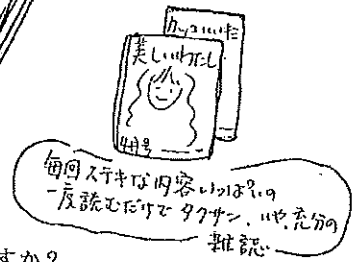 カッコいいた
美しいわたし
4月号
毎回ステキな内容いっぱいの
一度読むだけでタクサン、いや、充分の
雑誌
すか?